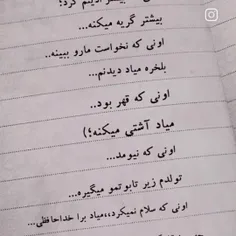 بیشتر گریه میکنه...
اونی که نخواست مارو ببینه..
بلخره میاد دیدنم...
اونی که قهر بود..
میاد آشتی میکنه؛)
اونی که نیومد...
تولدم زیر تابوتمو میگیره...
اونی که سلام نمیکرد،،میاد برا خداحافظی...